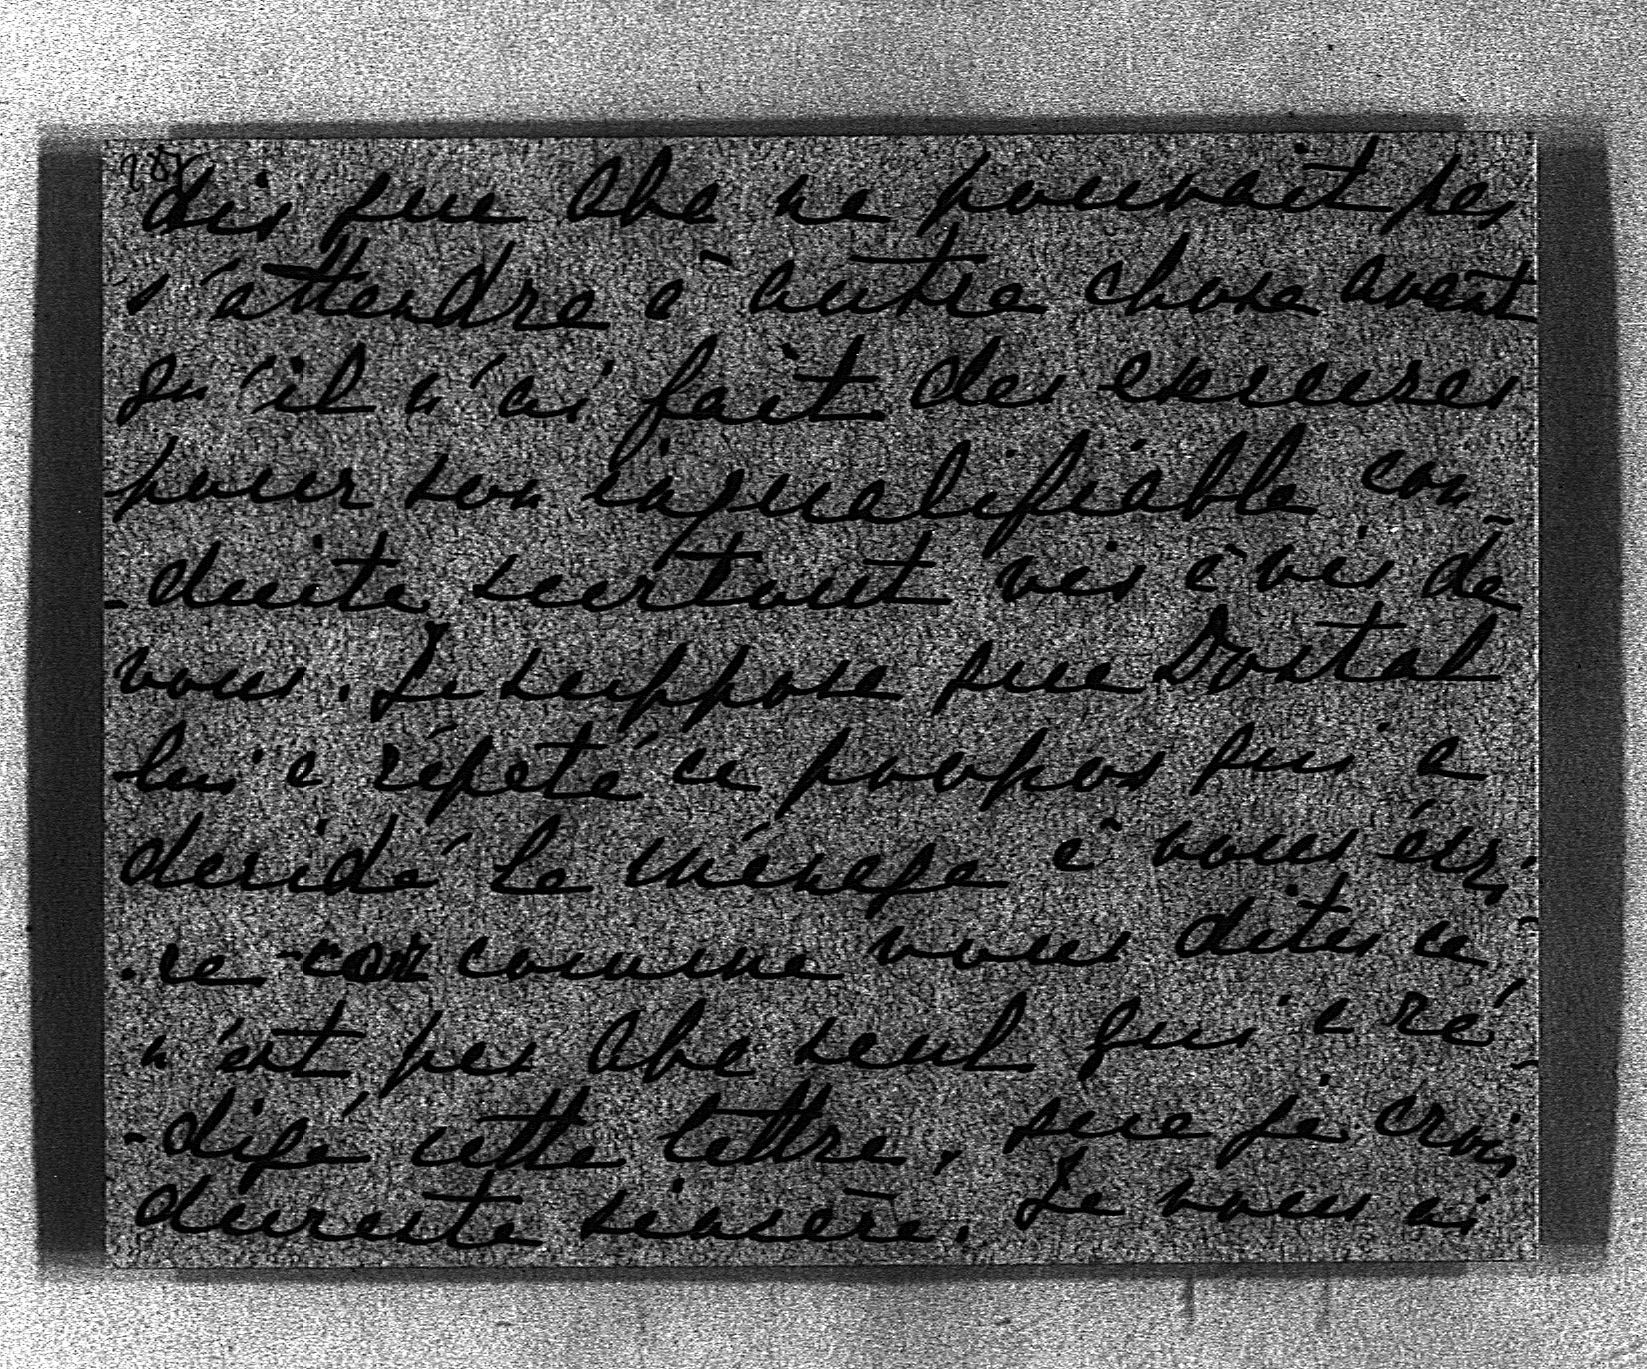 dis que Abe ne pouvait pas
s'attendre à autre chose avant
qu'il n'ai fait des excuses
pour son inqualifiable con-
-duite surtout vis à vis de
vous. Je suppose que Dostal
lui a répété ce propos qui a
decidé le ménage à vous écri-
-re car comme vous dites ce
n'est pas Abe seul qui a ré-
-digé cette lettre, que je crois
dureste sincère. Je vous ai